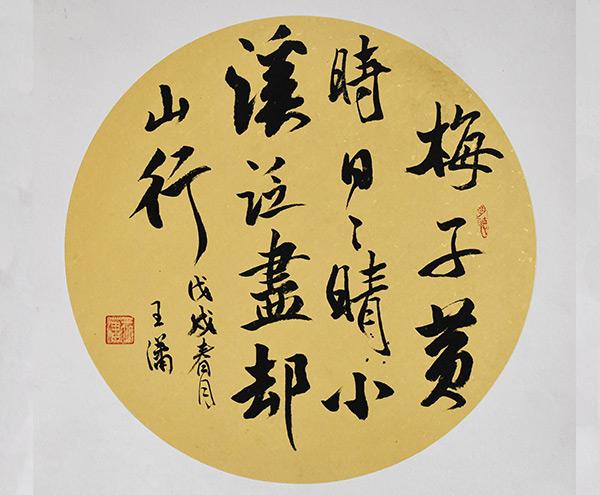 梅子黄
時日々晴小
溪泛盡却
山行
戊戌春月
王潇